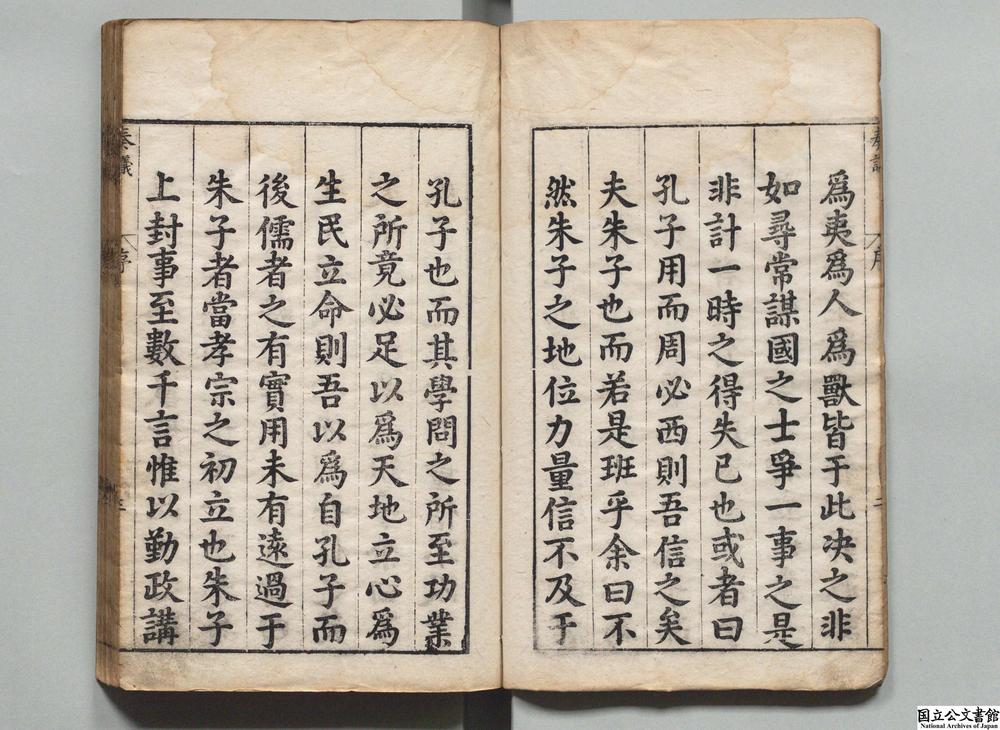 爲夷爲人爲獸皆于此决之非
如尋常謀國之士爭一事之是
非計一時之得失已也或者曰
孔子用而周必西則吾信之矣
夫朱子也而若是班乎余曰不
然朱子之地位力量信不及于
孔子也而其學問之所至功業
之所竟必足以爲天地立心爲
生民立命則吾以爲自孔子而
後儒者之有實用未有遠過于
朱子者當孝宗之初立也朱子
上封事至數千言惟以勤政講
奏議
序
国立公文書館
National Archives of Japan